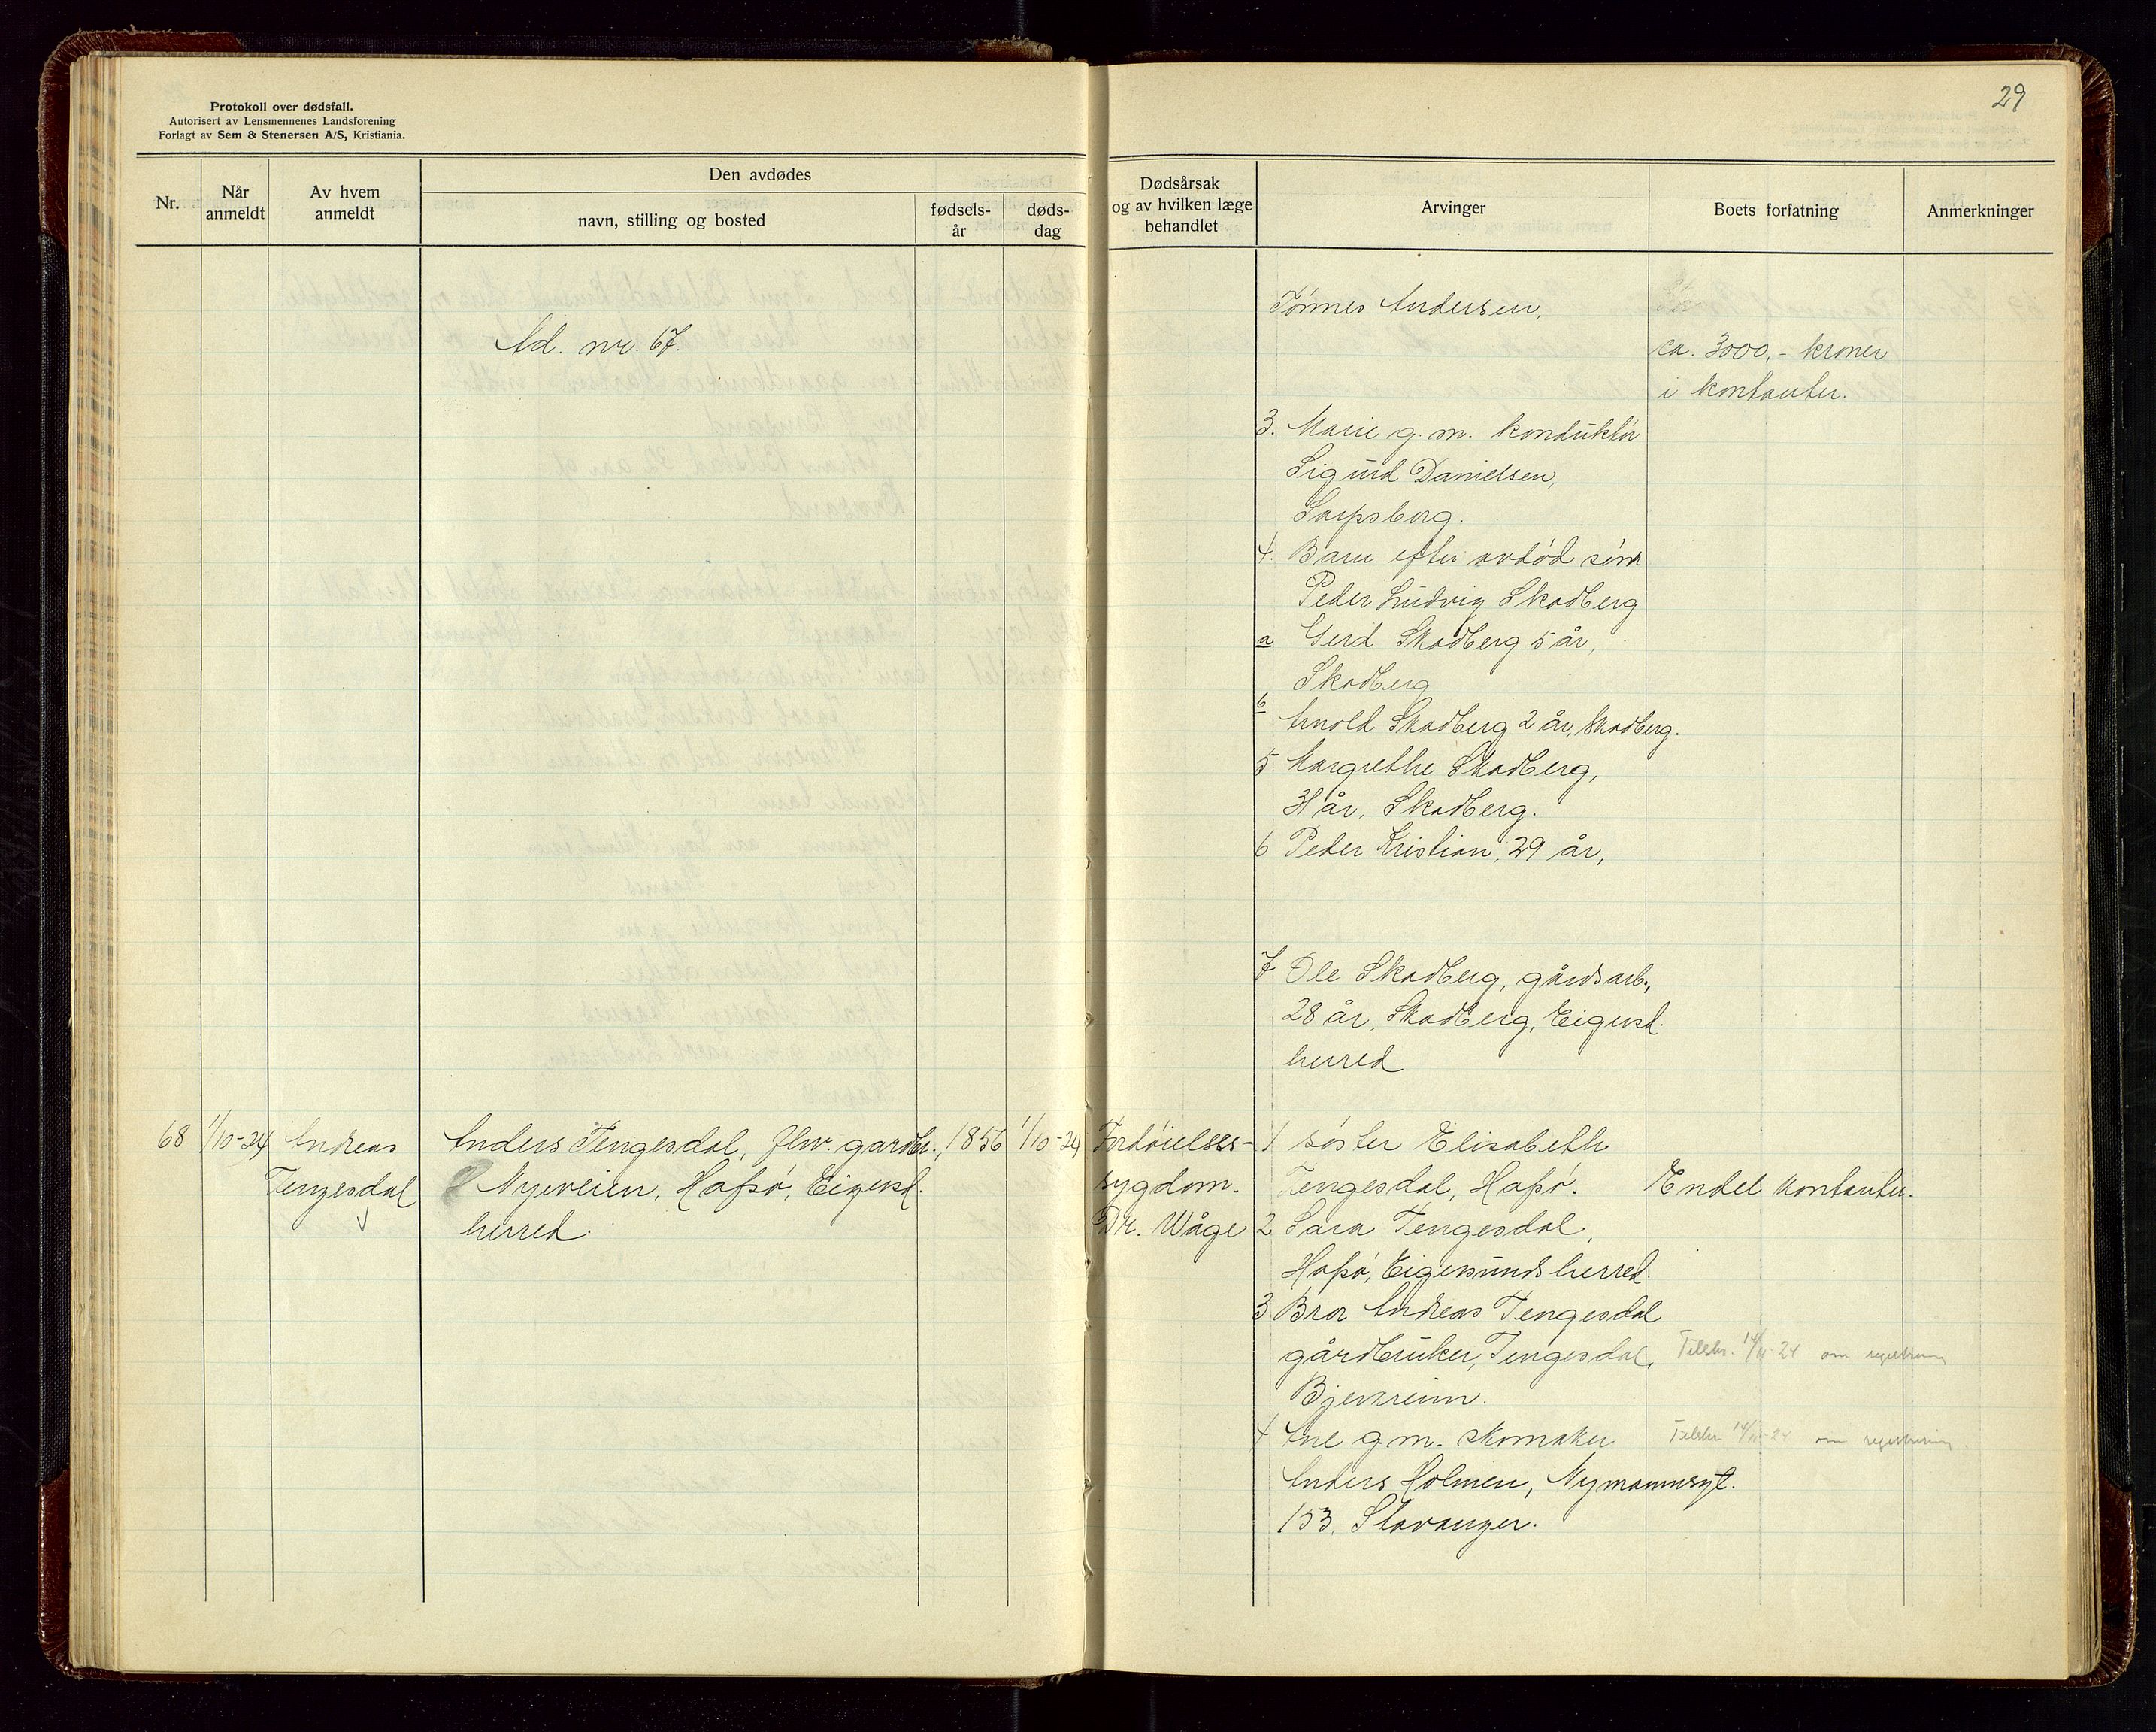 Protokoll over dødsfall.
Autorisert av Lensmennenes Landsforening
Forlagt av Sem & Stenersen A/S, Kristiania.
29
Nr.
Når anmeldt
Av hvem anmeldt
Den avdødes
navn, stilling og bosted
fødsels-
år
døds-
dag
Dødsårsak
og av hvilken læge
behandlet
Arvinger
Boets forfatning
Anmerkninger
Ad. nr. 67.
Tønnes Andersen,
ca. 3000,- kroner
i kontanter.
3. Marie g.m. konduktør
Sigurd Danielsen,
Sarpsborg.
4. Barn efter avdød sønn
Peder Ludvig Skadberg
a Gerd Skadberg 5 år,
Skadberg
b Arnold Skadberg 2 år, Skadberg.
5 Margrethe Skadberg,
31 år, Skadberg.
6 Peder Kristian, 29 år,
7 Ole Skadberg, gårdsarb.,
28 år, Skadberg, Eigersd.
herred
68 1/10-24 Andreas
Tengesdal
Anders Tengesdal, fhv. gardbr.,
Nyeveien, Hafsø, Eigersd.
herred.
1856 1/10-24
Fordøielses-
sygdom.
Dr. Wåge
1 søster Elisabeth
Tengesdal, Hafsø.
2 Sara Tengesdal,
Hafsø, Eigersunds herred.
3 Bror Andreas Tengesdal
gårdbruker, Tengesdal,
Bjerkreim.
4 Ane g.m. skomaker
Anders Holmen, Nymannsgt.
153, Stavanger.
Endel kontanter.
Tilskr. 14/11-24 om registrering
Tilskr 14/11-24 om registrering.